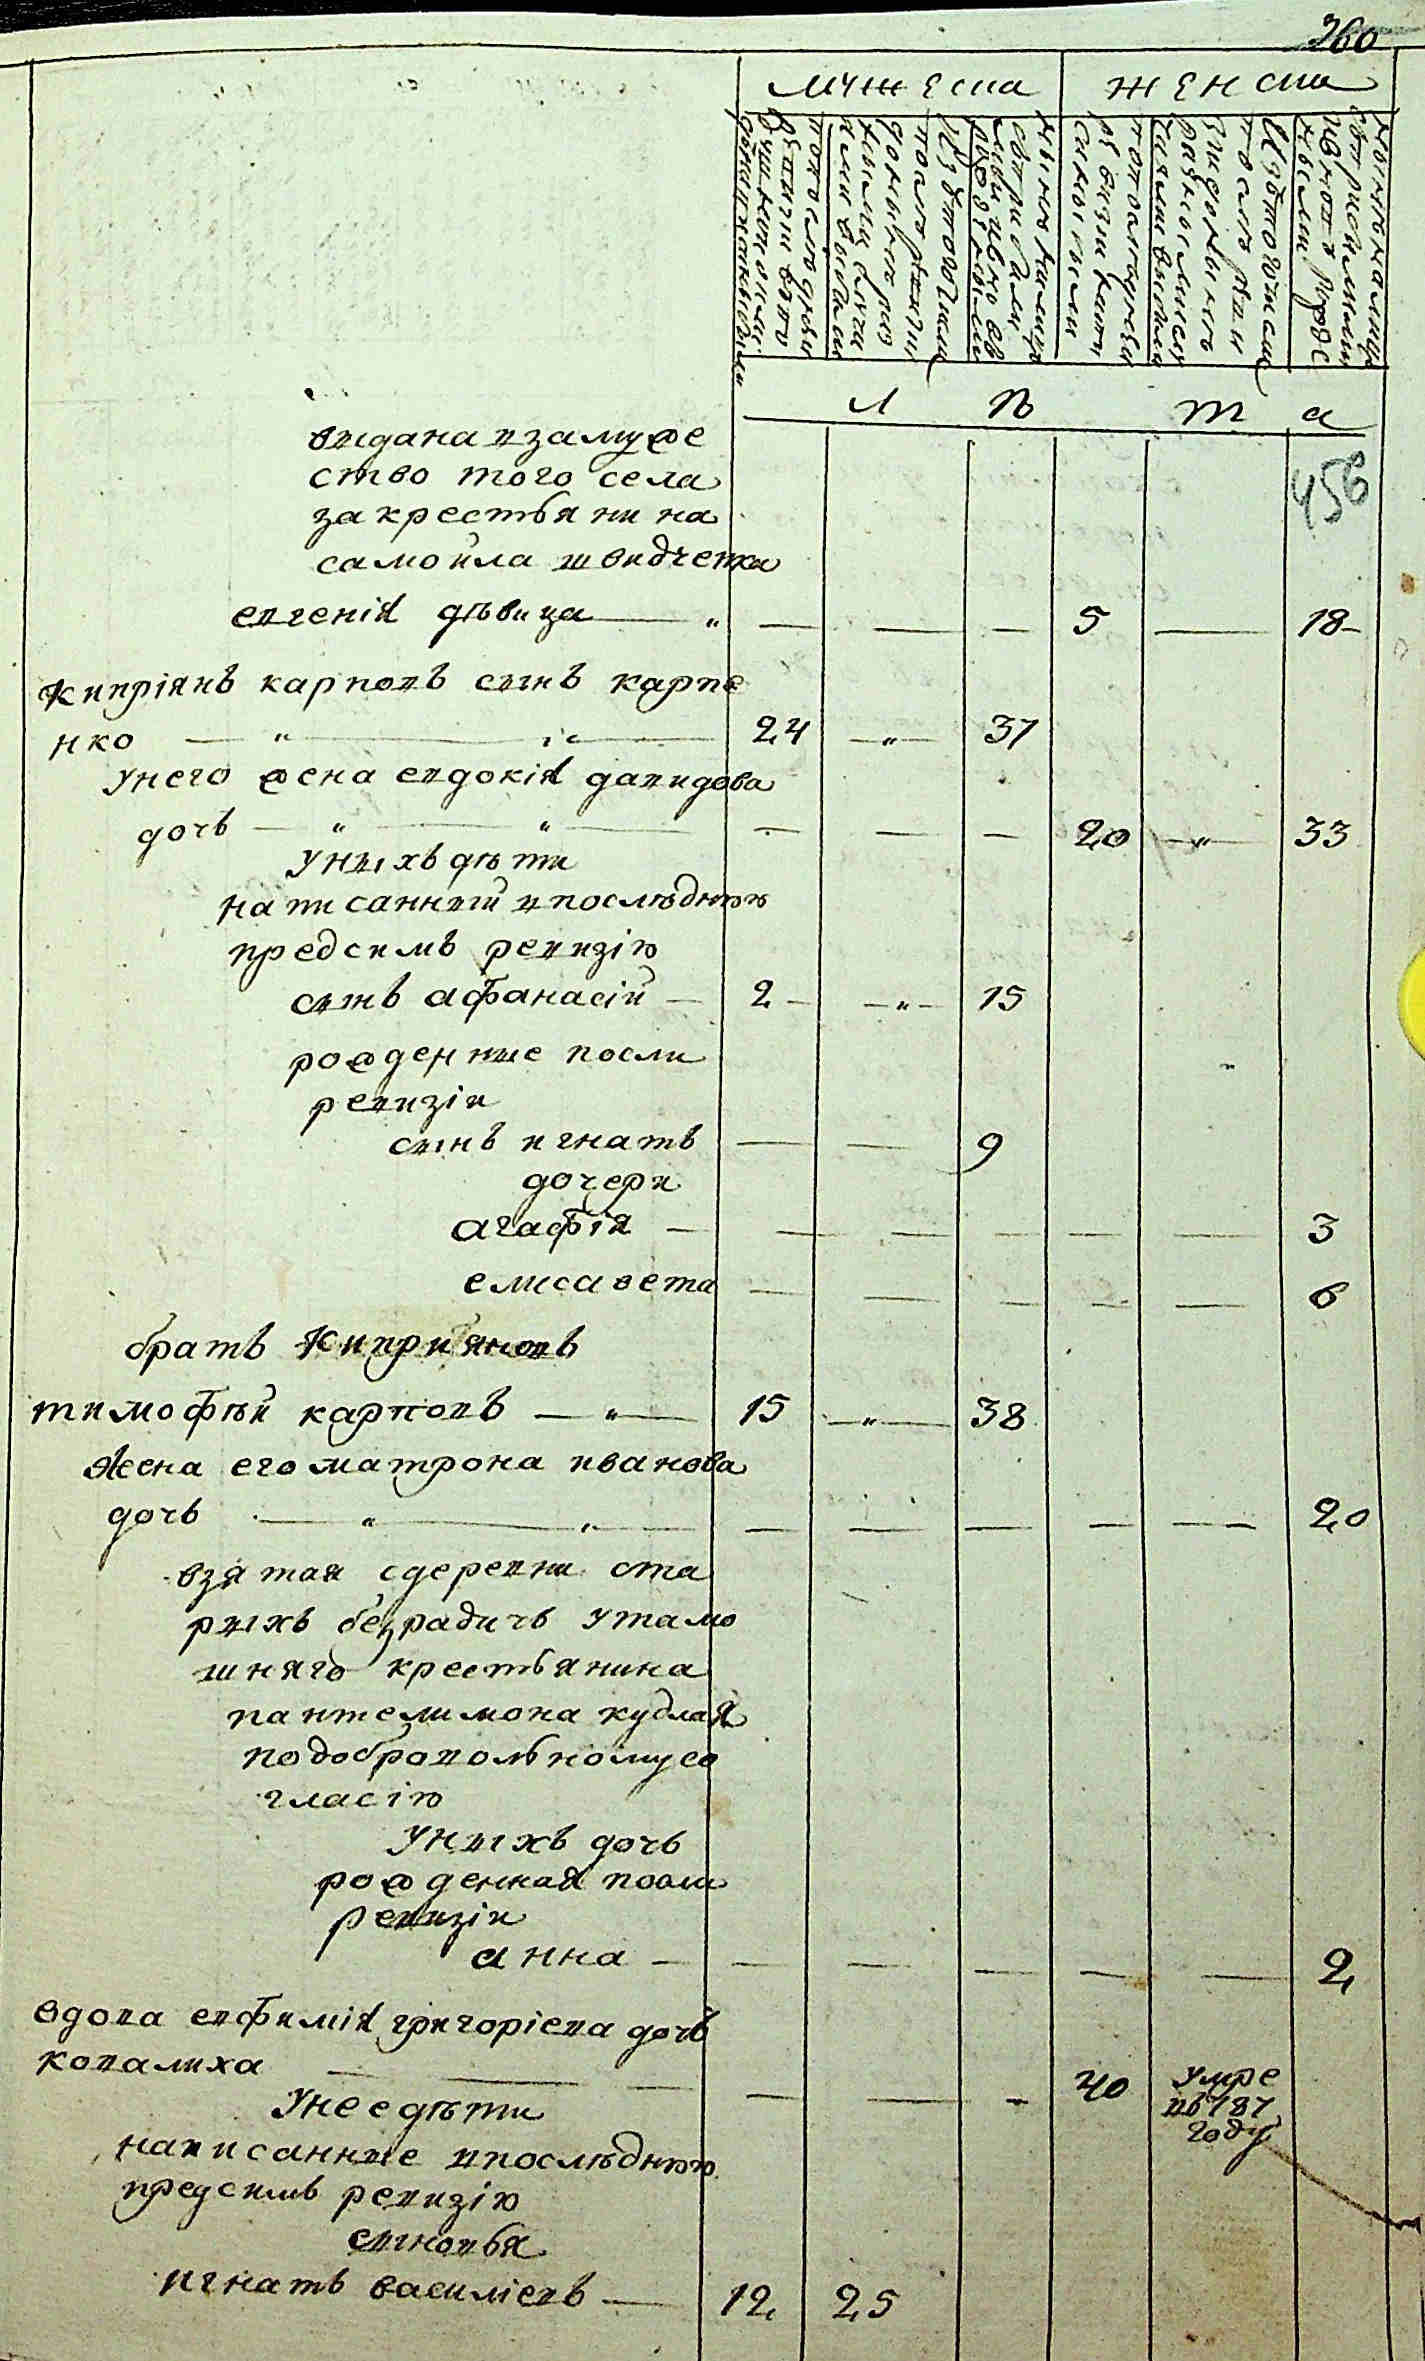 360
мужеска женска
л ѣ т а
456
выдана взамуже
ство того села
за крестьянина
самойла швидченка
евгенія дѣвица — " — — — 5 — 18
кипріянъ карповъ сынъ карпе
нко — " — " — 24 — " — 37
унего жена евдокія давидова
дочь — " — " — — — — 20 — " — 33
уныхъ дѣти
написанный впослѣднюю
предсимъ ревизію
сынъ афанасій — 2 — " — 15
рожденные посли
ревизіи
сынъ игнатъ — — 9
дочери
агафія — — — — — — 3
елисавета — — — — — 6
братъ киприяновъ
тимофѣй карповъ — " — 15 — " — 38
жена его матрона иванова
дочь — " — " — — — — — — 20
взятая сдеревни ста
рыхъ безрадичъ утамо
шняго крестьянина
пантелимона кублая
подобровольномусо
гласію
уныхъ дочь
рожденная посли
ревизіи
анна — — — — — — 2
вдова евфимія григоріева дочь
ковалиха — — — — — — 40 умре
въ 787
году
унее дѣти
написанные впослѣднюю
предсимъ ревизію
сыновья
игнатъ василіевъ — 12 25